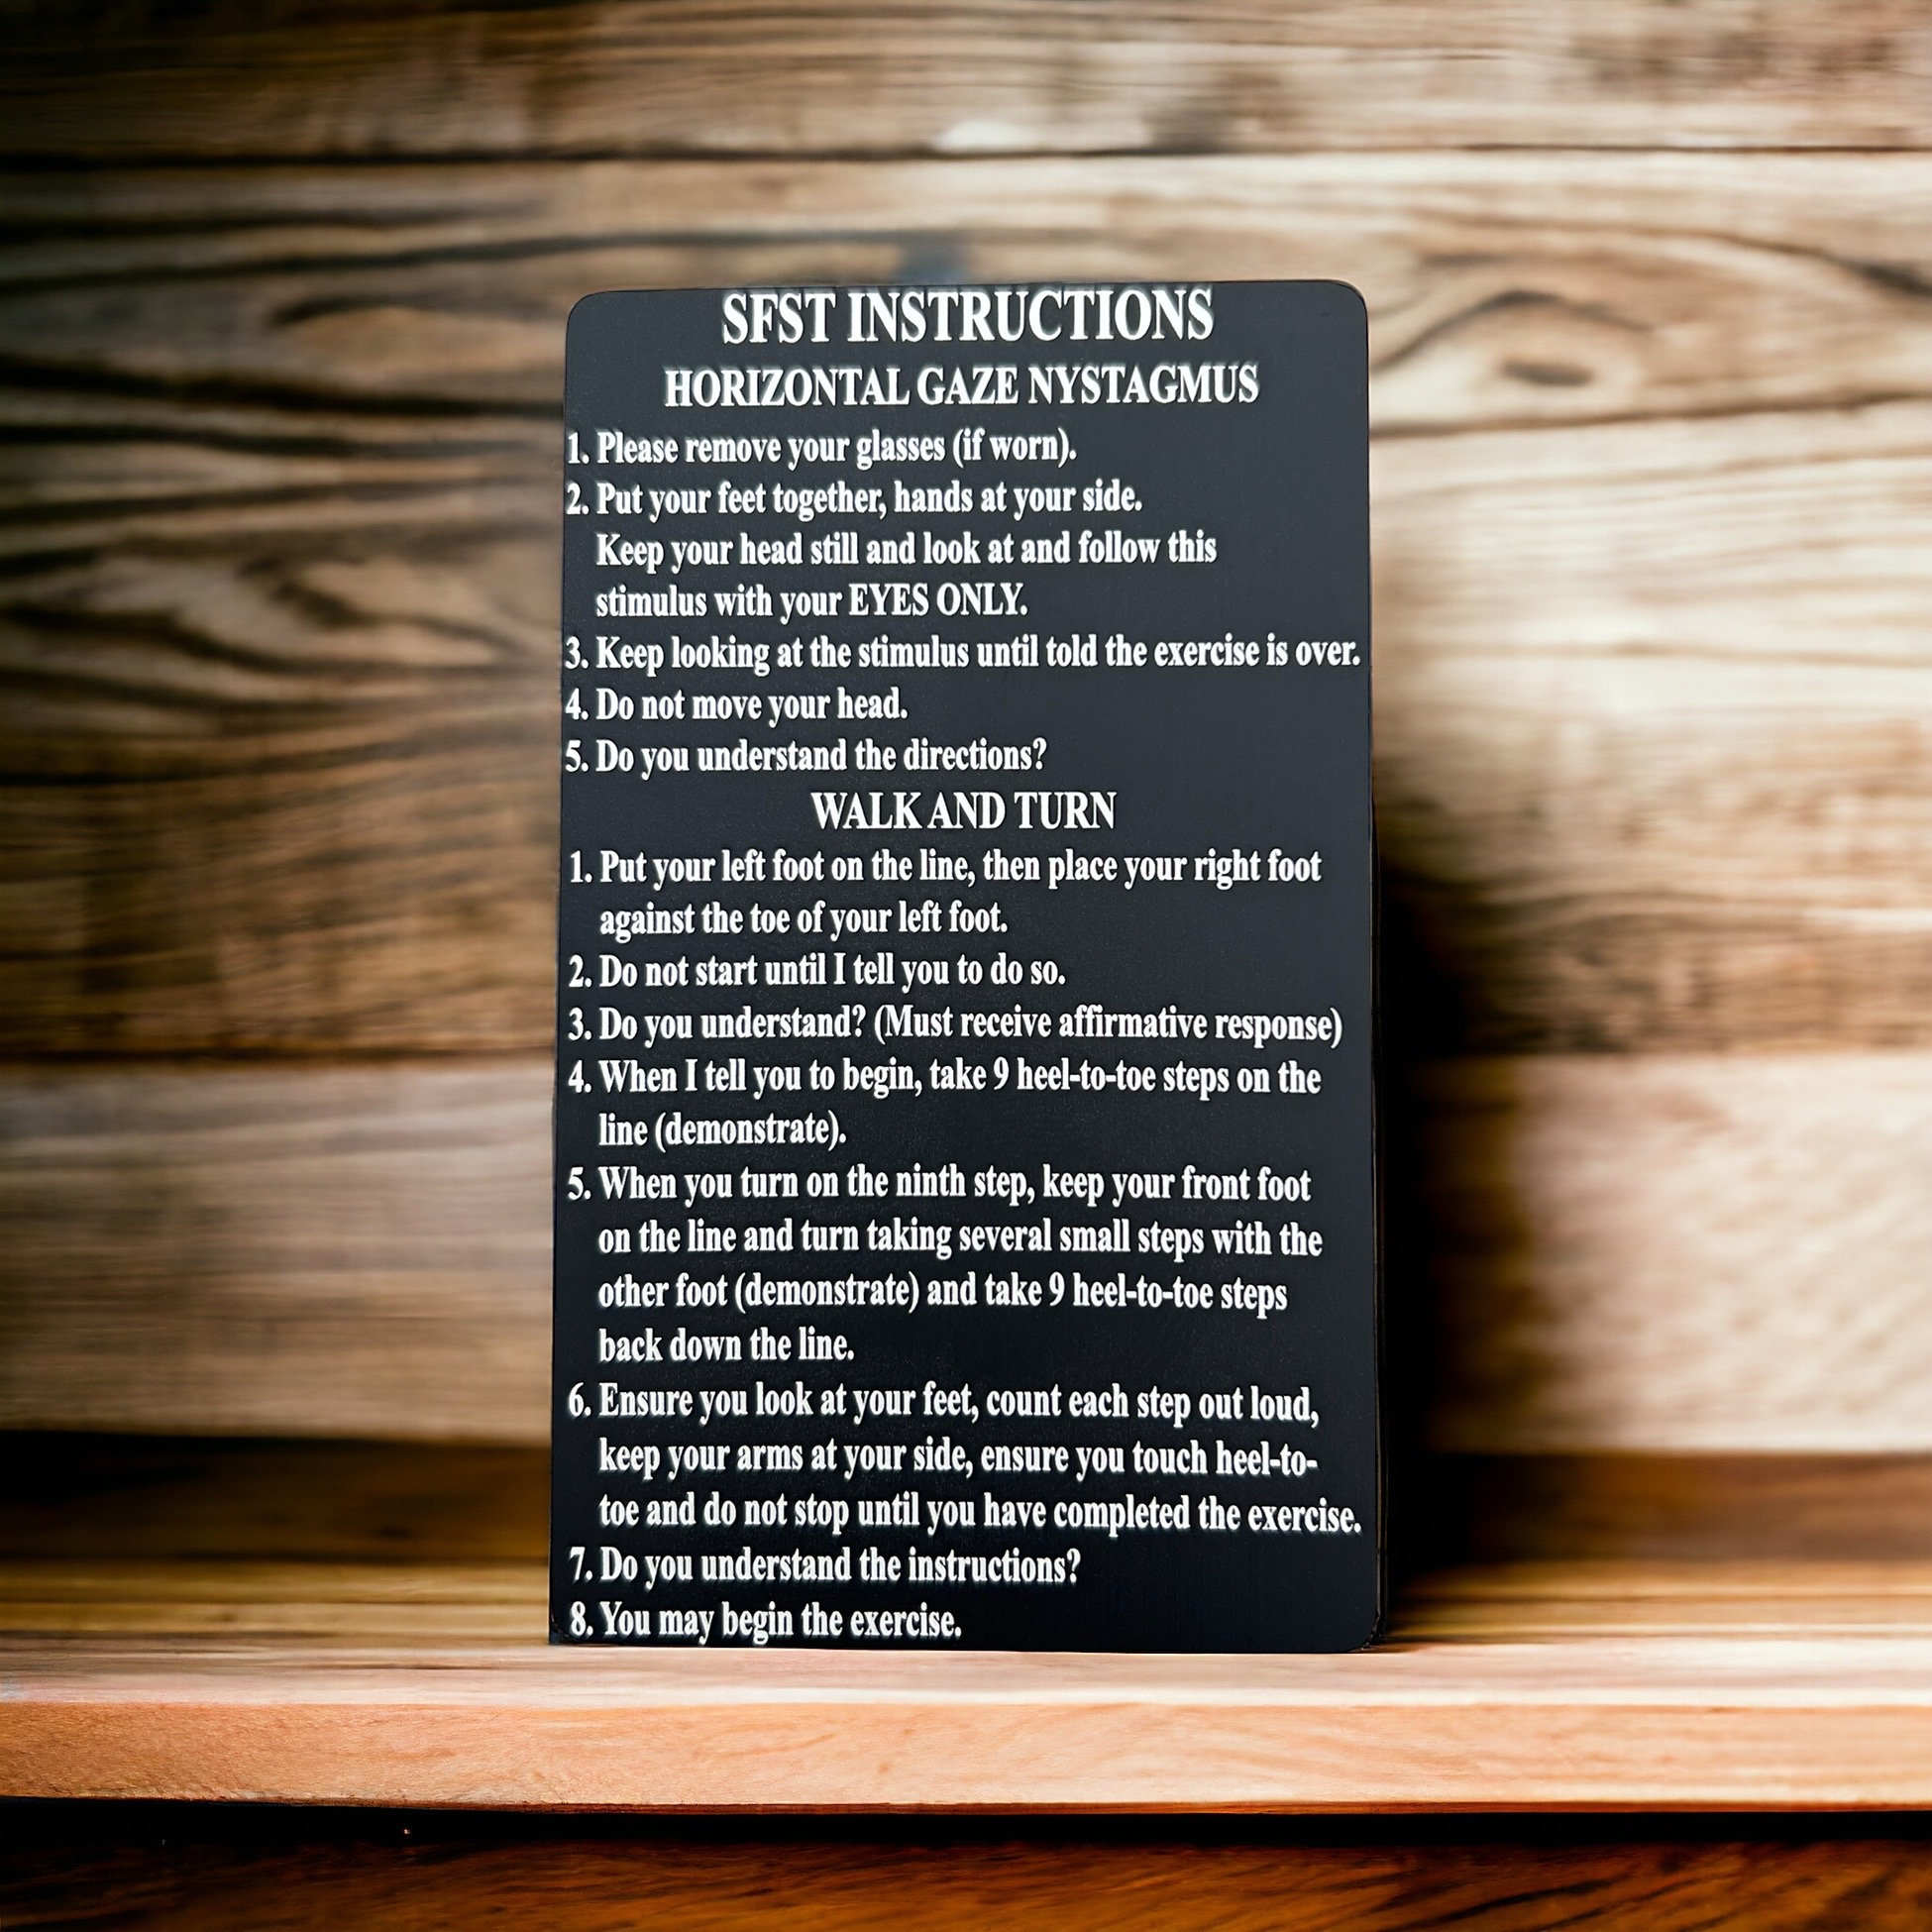 SFST INSTRUCTIONS
HORIZONTAL GAZE NYSTAGMUS
1. Please remove your glasses (if worn).
2. Put your feet together, hands at your side.
Keep your head still and look at and follow this
stimulus with your EYES ONLY.
3. Keep looking at the stimulus until told the exercise is over.
4. Do not move your head.
5. Do you understand the directions?
WALK AND TURN
1. Put your left foot on the line, then place your right foot
against the toe of your left foot.
2. Do not start until I tell you to do so.
3. Do you understand? (Must receive affirmative response)
4. When I tell you to begin, take 9 heel-to-toe steps on the
line (demonstrate).
5. When you turn on the ninth step, keep your front foot
on the line and turn taking several small steps with the
other foot (demonstrate) and take 9 heel-to-toe steps
back down the line.
6. Ensure you look at your feet, count each step out loud,
keep your arms at your side, ensure you touch heel-to-
toe and do not stop until you have completed the exercise.
7. Do you understand the instructions?
8. You may begin the exercise.